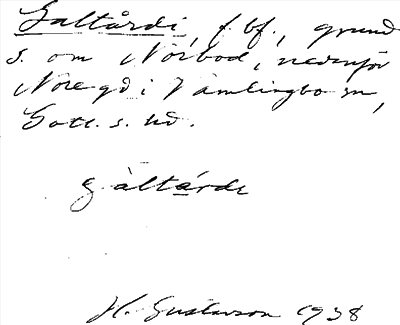 Galtårdi, f. bf., grund
s. om Norbod, nedanför
Nore gd i Vamlingbo sn,
Gotl. s. hd.
gàltárdi
H. Gustavson 1938